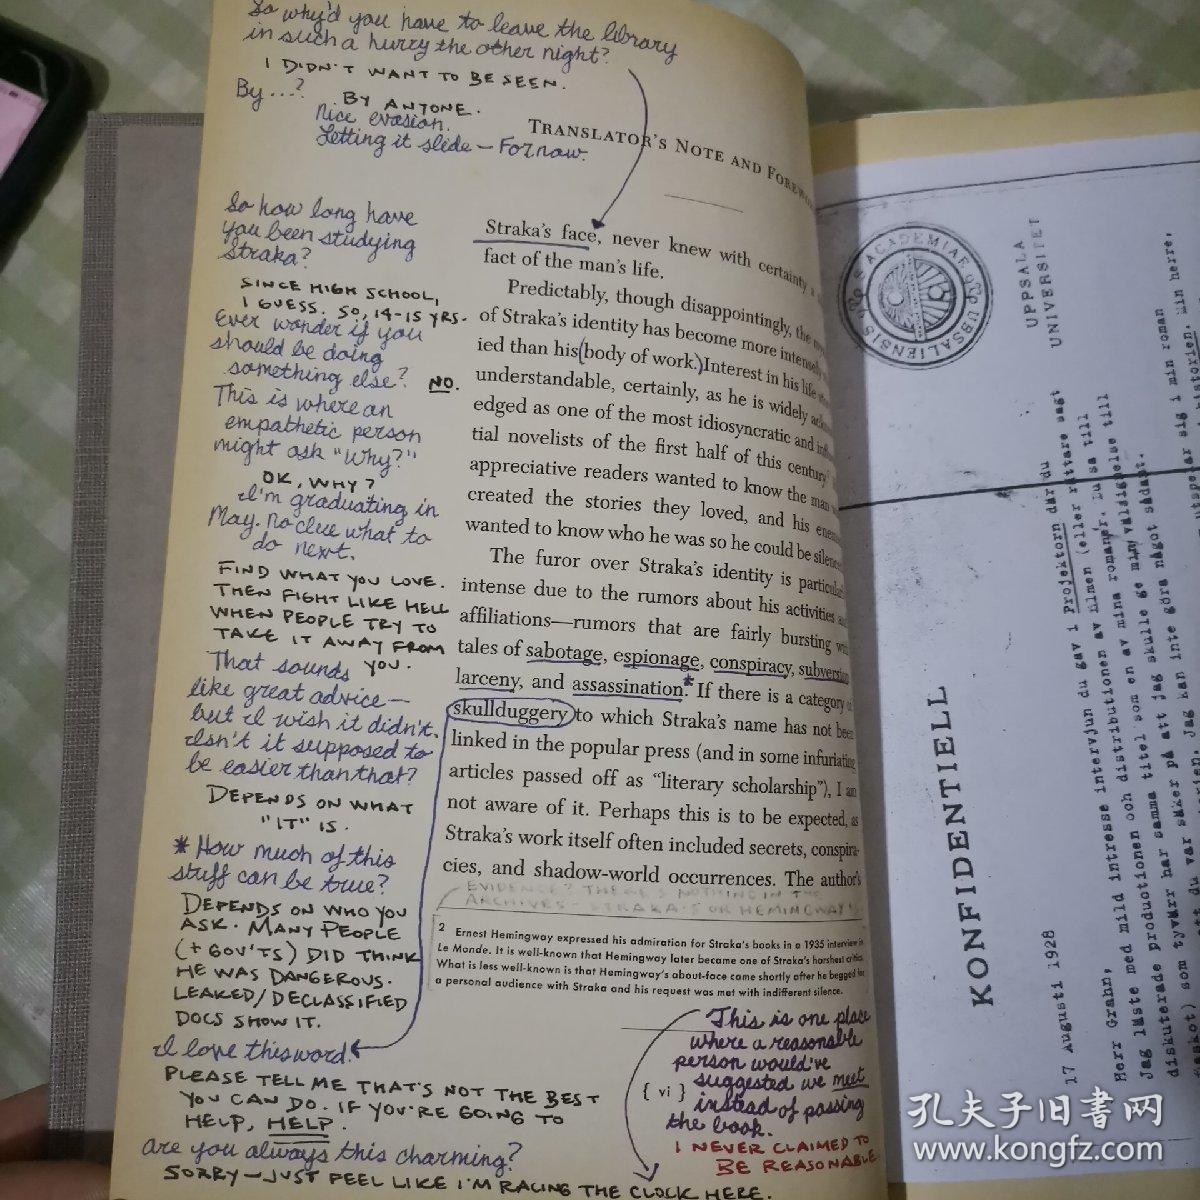 So why'd you have to leave the library
in such a hurry the other night?
I DIDN'T WANT TO BE SEEN.
By...?
BY ANYONE.
Nice evasion.
Letting it slide – For now.
TRANSLATOR'S NOTE AND
So how long have
you been studying
Straka?
SINCE HIGH SCHOOL,
I GUESS. SO, 14-15 YRS.
Ever wonder if you
should be doing
something else?
NO.
This is where an
empathetic person
might ask "Why?"
OK, WHY?
I'm graduating in
May. No clue what to
do next.
FIND WHAT YOU LOVE.
THEN FIGHT LIKE HELL
WHEN PEOPLE TRY TO
TAKE IT AWAY FROM
YOU.
That sounds
like great advice—
but I wish it didn't.
Isn't it supposed to
be easier than that?
DEPENDS ON WHAT
"IT" IS.
* How much of this
stuff can be true?
DEPENDS ON WHO YOU
ASK. MANY PEOPLE
(+ GOV'TS) DID THINK
HE WAS DANGEROUS.
LEAKED/DECLASSIFIED
DOCS SHOW IT.
I love this word!
PLEASE TELL ME THAT'S NOT THE BEST
YOU CAN DO. IF YOU'RE GOING TO
HELP, HELP.
are you always this charming?
SORRY – JUST FEEL LIKE I'M RACING THE CLOCK HERE.
Straka's face, never knew with certainty a
fact of the man's life.
Predictably, though disappointingly, the
of Straka's identity has become more intensely
ied than his (body of work.) Interest in his life
understandable, certainly, as he is widely
edged as one of the most idiosyncratic and
tial novelists of the first half of this century
appreciative readers wanted to know the man
created the stories they loved, and his
wanted to know who he was so he could be
The furor over Straka's identity is
intense due to the rumors about his activities
affiliations—rumors that are fairly bursting
tales of sabotage, espionage, conspiracy, subversion
larceny, and assassination.* If there is a category of
skullduggery to which Straka's name has not been
linked in the popular press (and in some infuriating
articles passed off as "literary scholarship"), I am
not aware of it. Perhaps this is to be expected, as
Straka's work itself often included secrets, conspira-
cies, and shadow-world occurrences. The author's
EVIDENCE? THERE'S NOTHING IN THE
ARCHIVES – STRAKA'S OR HEMINGWAY'S
2 Ernest Hemingway expressed his admiration for Straka's books in a 1935 interview in
Le Monde. It is well-known that Hemingway later became one of Straka's harshest critics.
What is less well-known is that Hemingway's about-face came shortly after he begged for
a personal audience with Straka and his request was met with indifferent silence.
This is one place
where a reasonable
person would've
suggested we meet
instead of passing
the book.
{ vi }
I NEVER CLAIMED TO
BE REASONABLE
ACADEMIAE
UPSALIENSIS
UPPSALA
UNIVERSITET
KONFIDENTIELL
17 Augusti 1928
Herr Grahn,
Jag läste med mild intresse intervjun du gav i Projektorn där du
diskuterade produktionen och distributionen av filmen (eller rättare sagt
som tyvärr har samma titel som en av mina romaner. Lusa till
var säker på att jag skulle ge min välsignelse till
Jag kan inte göra något sådant.
sig i min roman
historien. Min herre,
孔夫子旧书网
www.kongfz.com